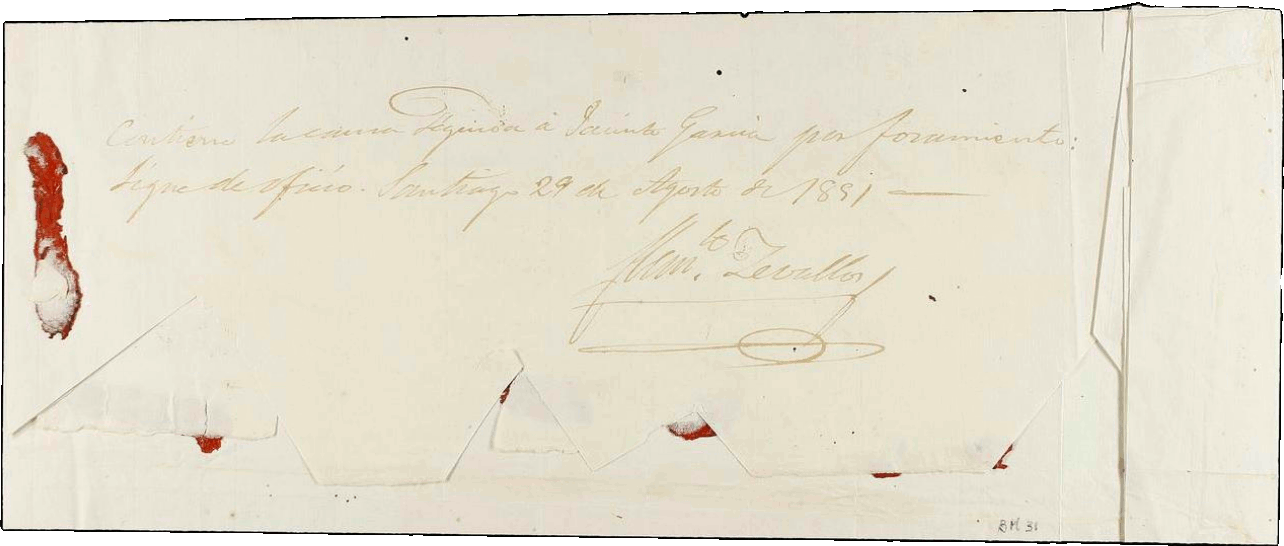 Contiene la causa seguida á Jacinto Garcia por foramiento:
sigue de oficio. Santiago 29 de Agosto de 1851
Zevallos
BM 31